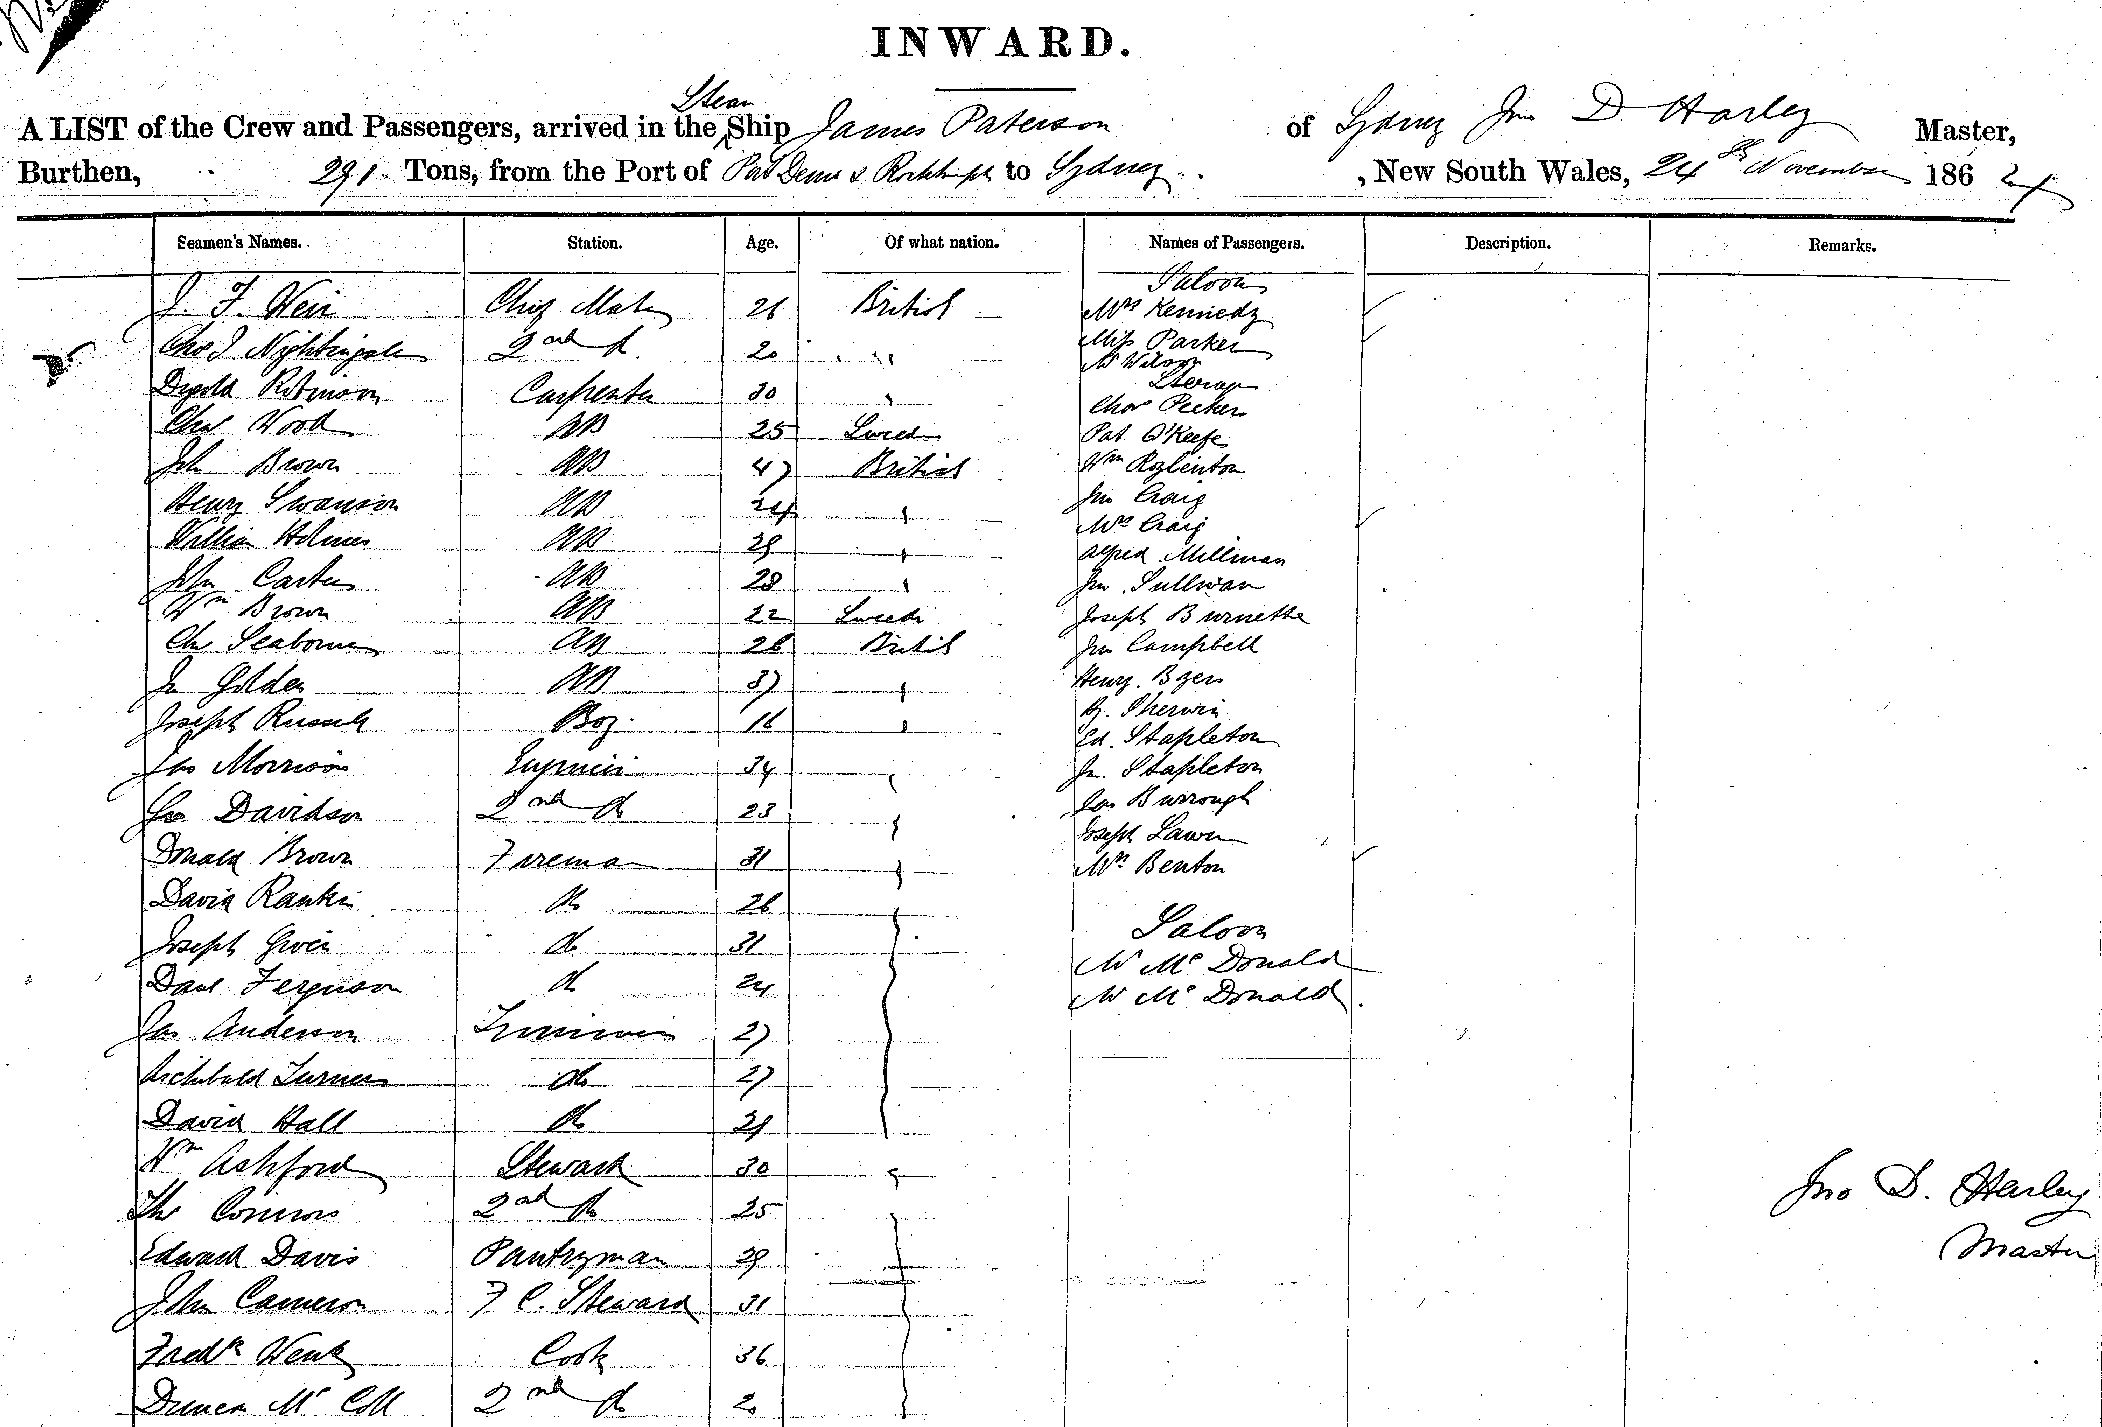 INWARD.
A LIST of the Crew and Passengers, arrived in the Steam Ship James Paterson of Sydney Jno D Harley Master,
Burthen, 291 Tons, from the Port of Port Denison & Rockhampton to Sydney , New South Wales, 24th November 1864
Seamen's Names. Station. Age. Of what nation. Names of Passengers. Description. Remarks.
Saloon
J. F. Weir Chief Mate 26 British Mrs Kennedy
Chas J Nightingale 2nd do 20 " Miss Parker
Mr Wilson
Steerage
Robinson Carpenter 30 " Chas Pecker
Chas Wood AB 25 Swede Pat O'Keefe
John Brown AB 47 British Wm
Henry Swanson AB 24 " Jno Craig
Mrs Craig
William Holmes AB 29 " Alfred Millman
John Carter AB 28 " Jno Sullivan
Wm Brown AB 22 Swede Joseph Burnette
Chs Seaborne AB 26 British Jno Campbell
Jn Golden AB 37 " Henry Byers
Joseph Russell Boy 16 " Sherwin
Ed. Stapleton
Jas Morrison Engineer 34 " Jn. Stapleton
Geo Davidson 2nd do 23 " Jas Burrough
Joseph Lawn
Donald Brown Fireman 31 " Mrs Benton
David Rankin do 26
Saloon
Joseph do 31 Mr McDonald
Danl Ferguson do 24 Mr McDonald
Jas Anderson Trimmer 27
Archibald Turner do 27
David Hall do 29
Wm Ashford Steward 30 "
Thos Connors 2nd do 25
Jno D. Harley
Master
Edward Davis Pantryman 29
John Cameron F C. Steward 31
Fredk Wenk Cook 36
Duncan McColl 2nd do 20